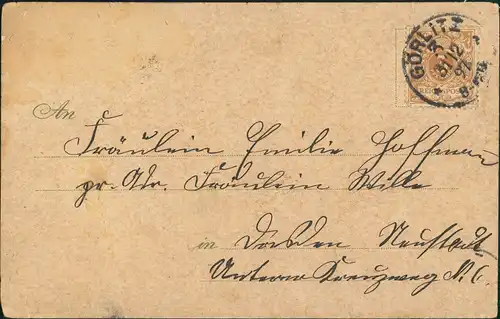 GÖRLITZ
3
31 12
97
REICHSPOST
An
Fräulein Emilie Hoffmann
pr. Adr. Fräulein Wille
in Dresden Neustadt
Unterer Kreuzweg N. 6.